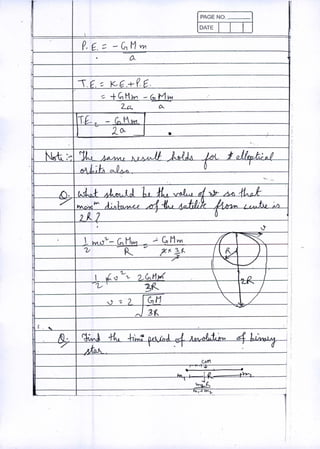 PAGE NO.
DATE
P.E. = - GMm
a
T.E. = K.E. + P.E.
= + GMm - GMm
2a a
T.E. = - GMm
2a
Note :- The same result holds for elliptical
orbits also.
Q: What should be the value of v so that
max^m distance of the satellite from centre is
2R ?
1/2 mv² - GMm = - GMm
R 2 × 3R
2
1/2 v² = 2GM
3R
v = 2 √ GM
3R
v
R
2R
Q: Find the time period of revolution of binary
star.
COM
m₁ R m₂
m₁+m₂